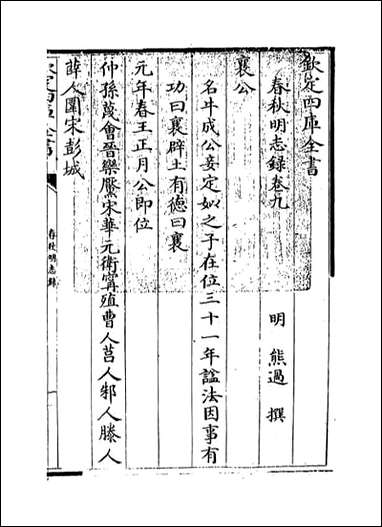 欽定四庫全書
春秋明志錄卷九
明 熊過 撰
襄公
名午成公妾定姒之子在位三十一年諡法因事有
功曰襄辟土有德曰襄
元年春王正月公即位
仲孫蔑會晉欒黶宋華元衛甯殖曹人莒人邾人滕人
薛人圍宋彭城
欽定四庫全書
春秋明志錄